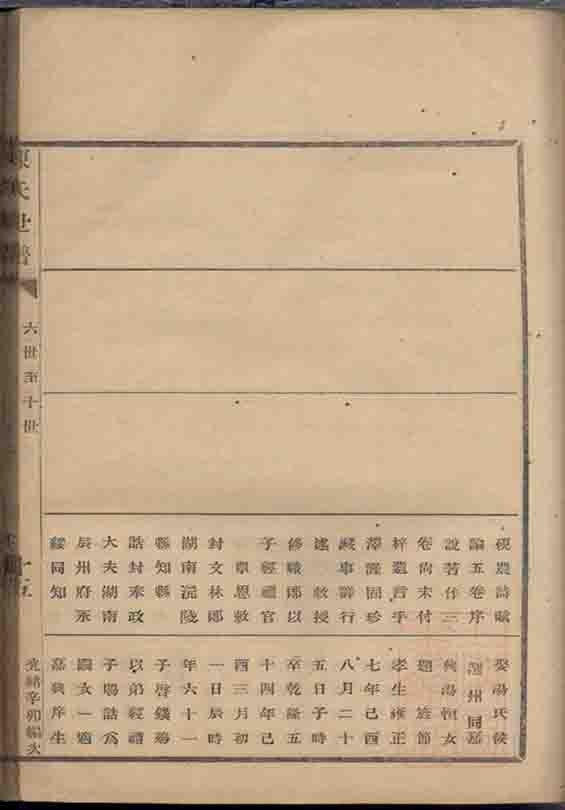 陳氏世譜
六世至十世
硯農詩賦
論五卷序
說著作三
卷尚未付
梓遺言乎
澤謹固珍
藏事詳行
述 敕授
修職郎以
子經禮官
 覃恩敕
封文林郎
湖南沅陵
縣知縣
誥封奉政
大夫湖南
辰州府永
綏同知
娶湯氏候
選州同嘉
興湯恒女
題旌節
孝生雍正
七年己酉
八月二十
五日子時
卒乾隆五
十四年己
酉三月初
一日辰時
年六十一
子啓錢殤
以弟經禮
子賜誥為
嗣女一適
嘉興庠生
光緒辛卯編次